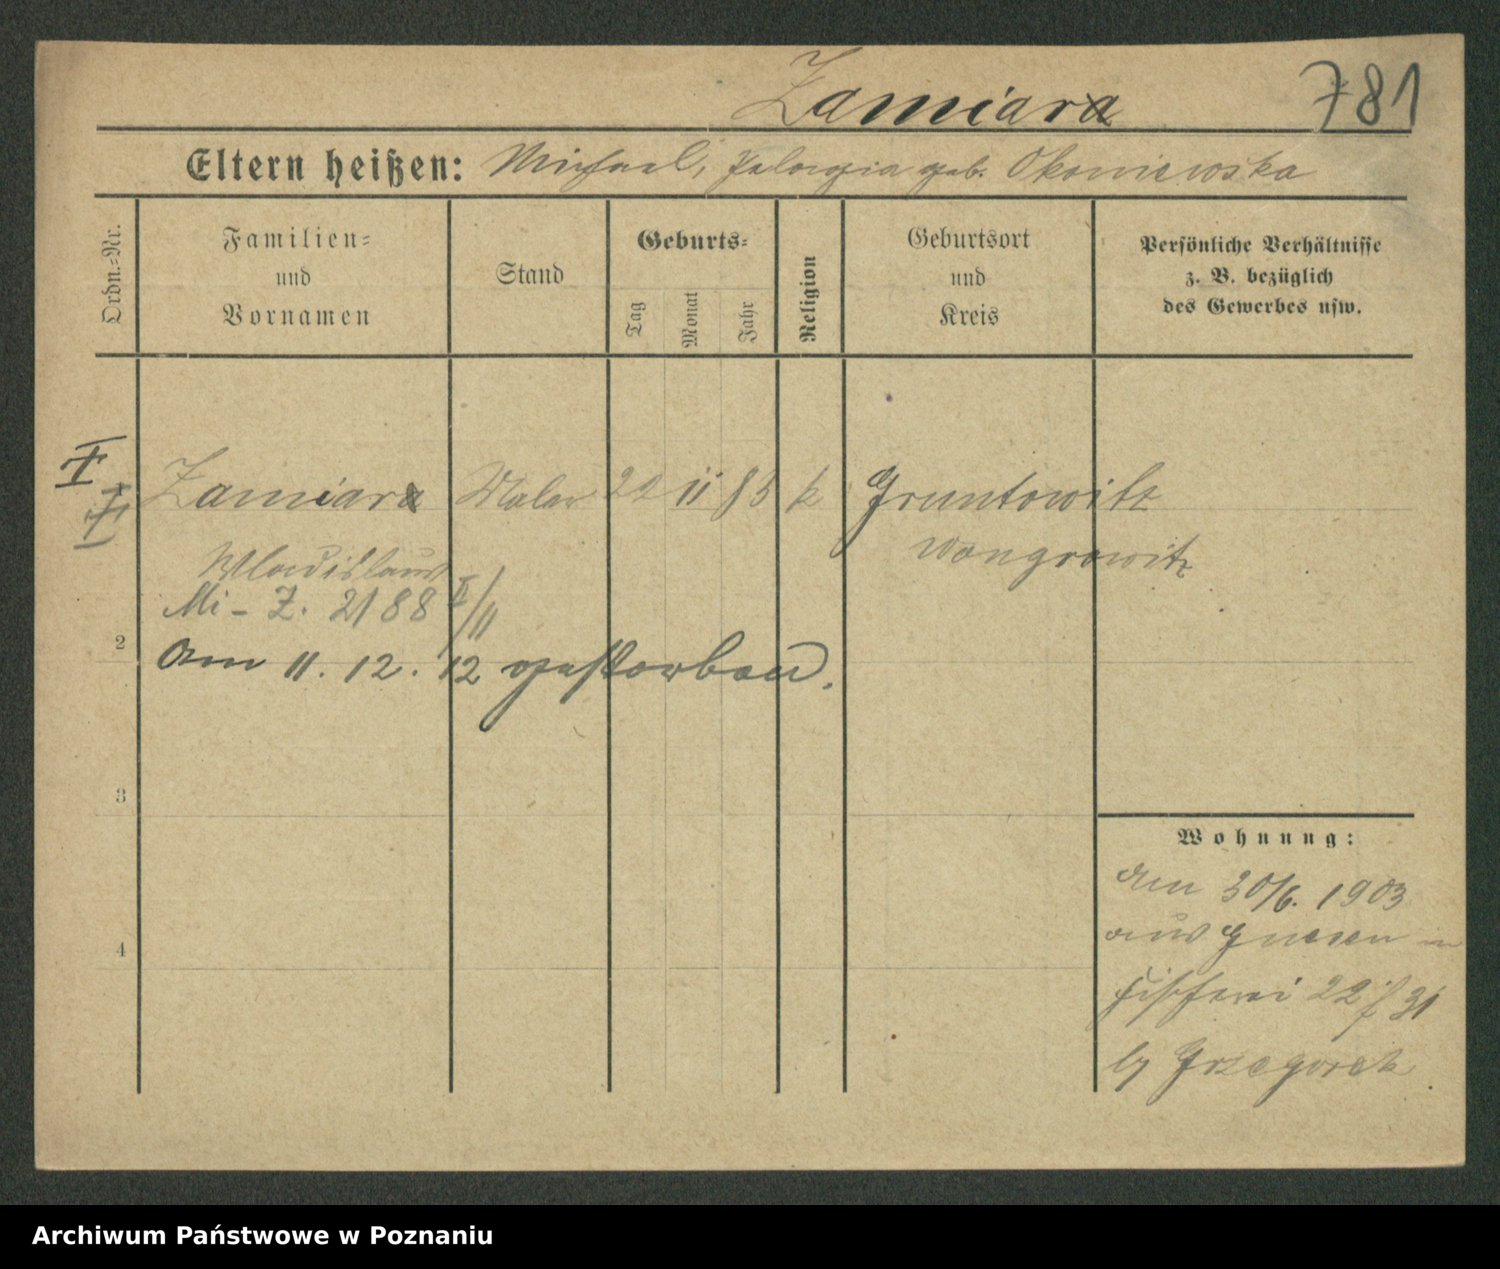 Zamiara 781
Eltern heißen: Michael, Pelagia geb. Okoniewska
Ordn.-Nr.
Familien-
und
Vornamen
Stand
Geburts-
Tag
Monat
Jahr
Religion
Geburtsort
und
Kreis
Persönliche Verhältnisse
z. B. bezüglich
des Gewerbes usw.
Zamiara Maler 22 11 85 k Gruntowitz
Wladislaus Wongrowitz
Mi - Z. 2188 II/11
2
Am 11. 12. 12 gestorben.
3
4
Wohnung:
Am 30/6. 1903
aus Gnesen in
Fischerei 22 f 31
by Grzegorek
Archiwum Państwowe w Poznaniu